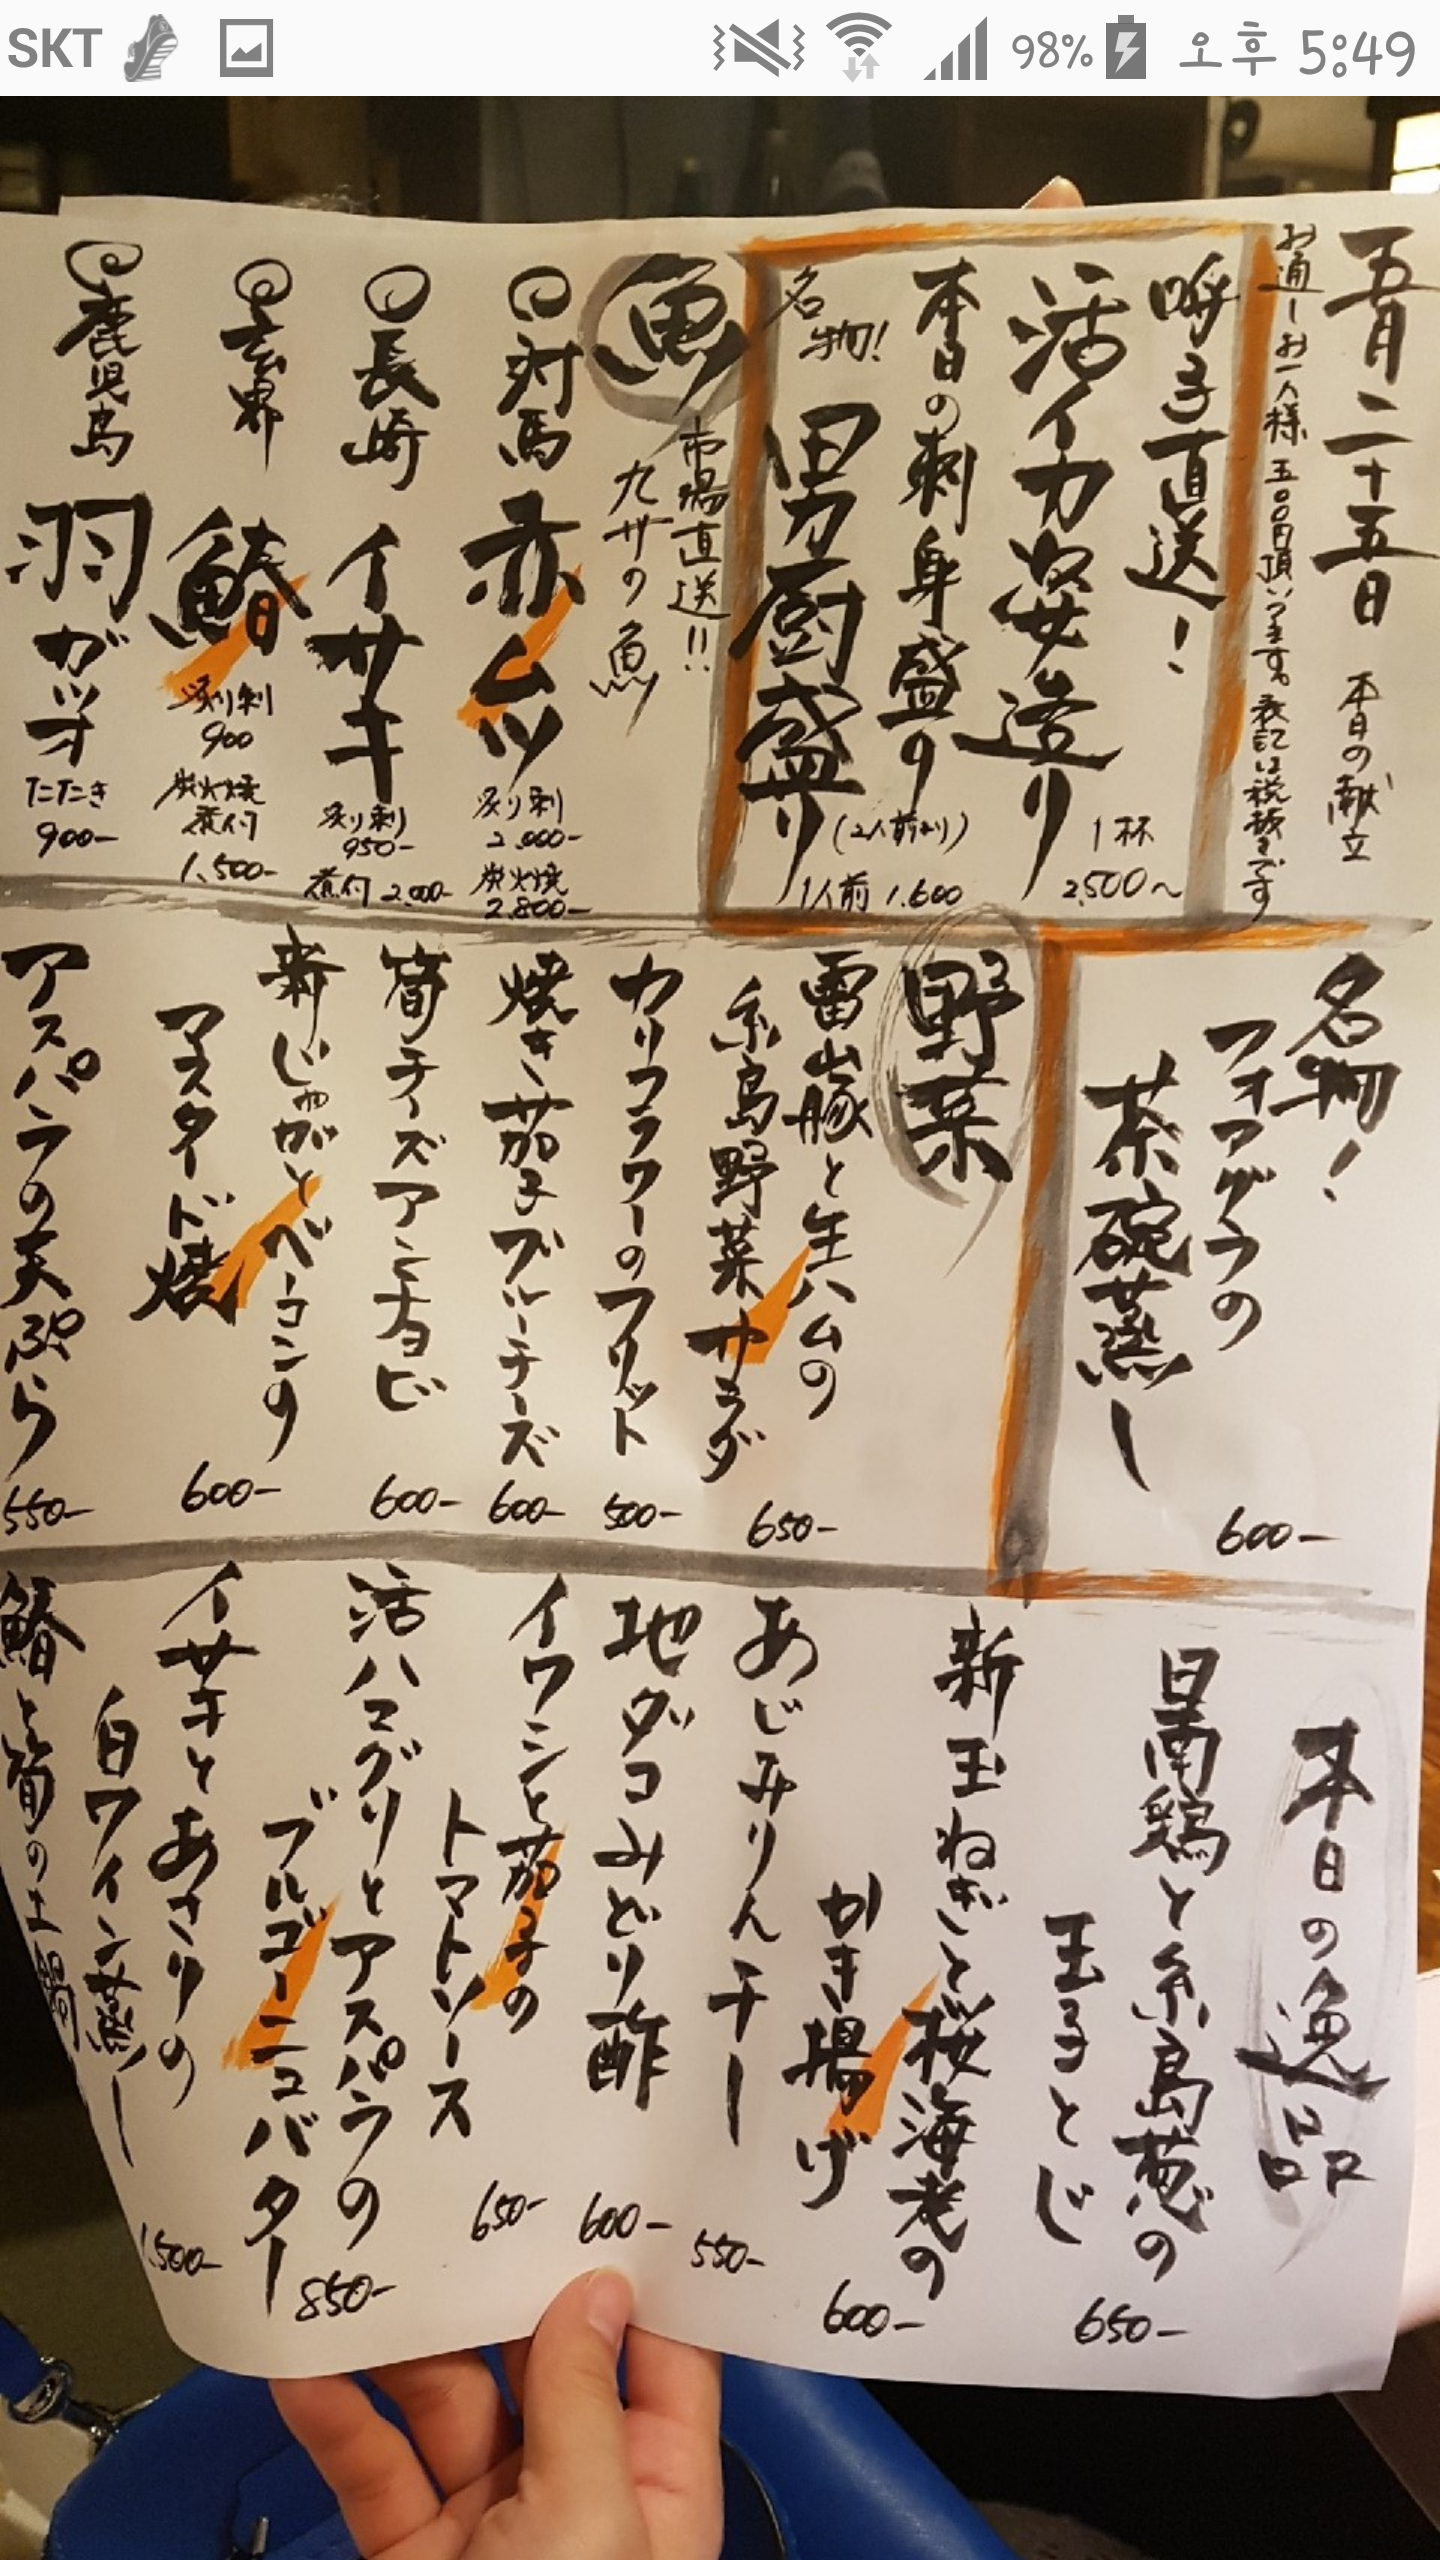 SKT
98%
오후 5:49
五月二十五日 本日の献立
お通しお一人様 五〇〇円頂いてます。表記は税抜きです
呼子直送!
活イカ姿造り
1杯
2,500~
本日の刺身盛り
(2人前より)
名物!
男厨盛り
1人前 1,600
魚
市場直送!!
九州の魚
対馬
赤ムツ
炙り刺
2,000-
炭火焼
2,800-
長崎
イサキ
炙り刺
950-
煮付 2,000-
玄界
鰆
炙り刺
900
炭火焼
煮付
1,500-
鹿児島
羽ガツオ
たたき
900-
名物!
フォアグラの
茶碗蒸し
600-
野菜
雷山豚と生ハムの
糸島野菜サラダ
650-
カリフラワーのフリット
500-
焼き茄子ブルーチーズ
600-
筍チーズアンチョビ
600-
新じゃがとベーコンの
マスタード焼
600-
アスパラの天ぷら
550-
本日の逸品
日南鶏と糸島葱の
玉子とじ
650-
新玉ねぎと桜海老の
かき揚げ
600-
あじみりん干し
550-
地ダコみどり酢
600-
イワシと茄子の
トマトソース
650-
活ハマグリとアスパラの
ブルゴーニュバター
850-
イサキとあさりの
白ワイン蒸し
1,500-
鰆と筍の土鍋